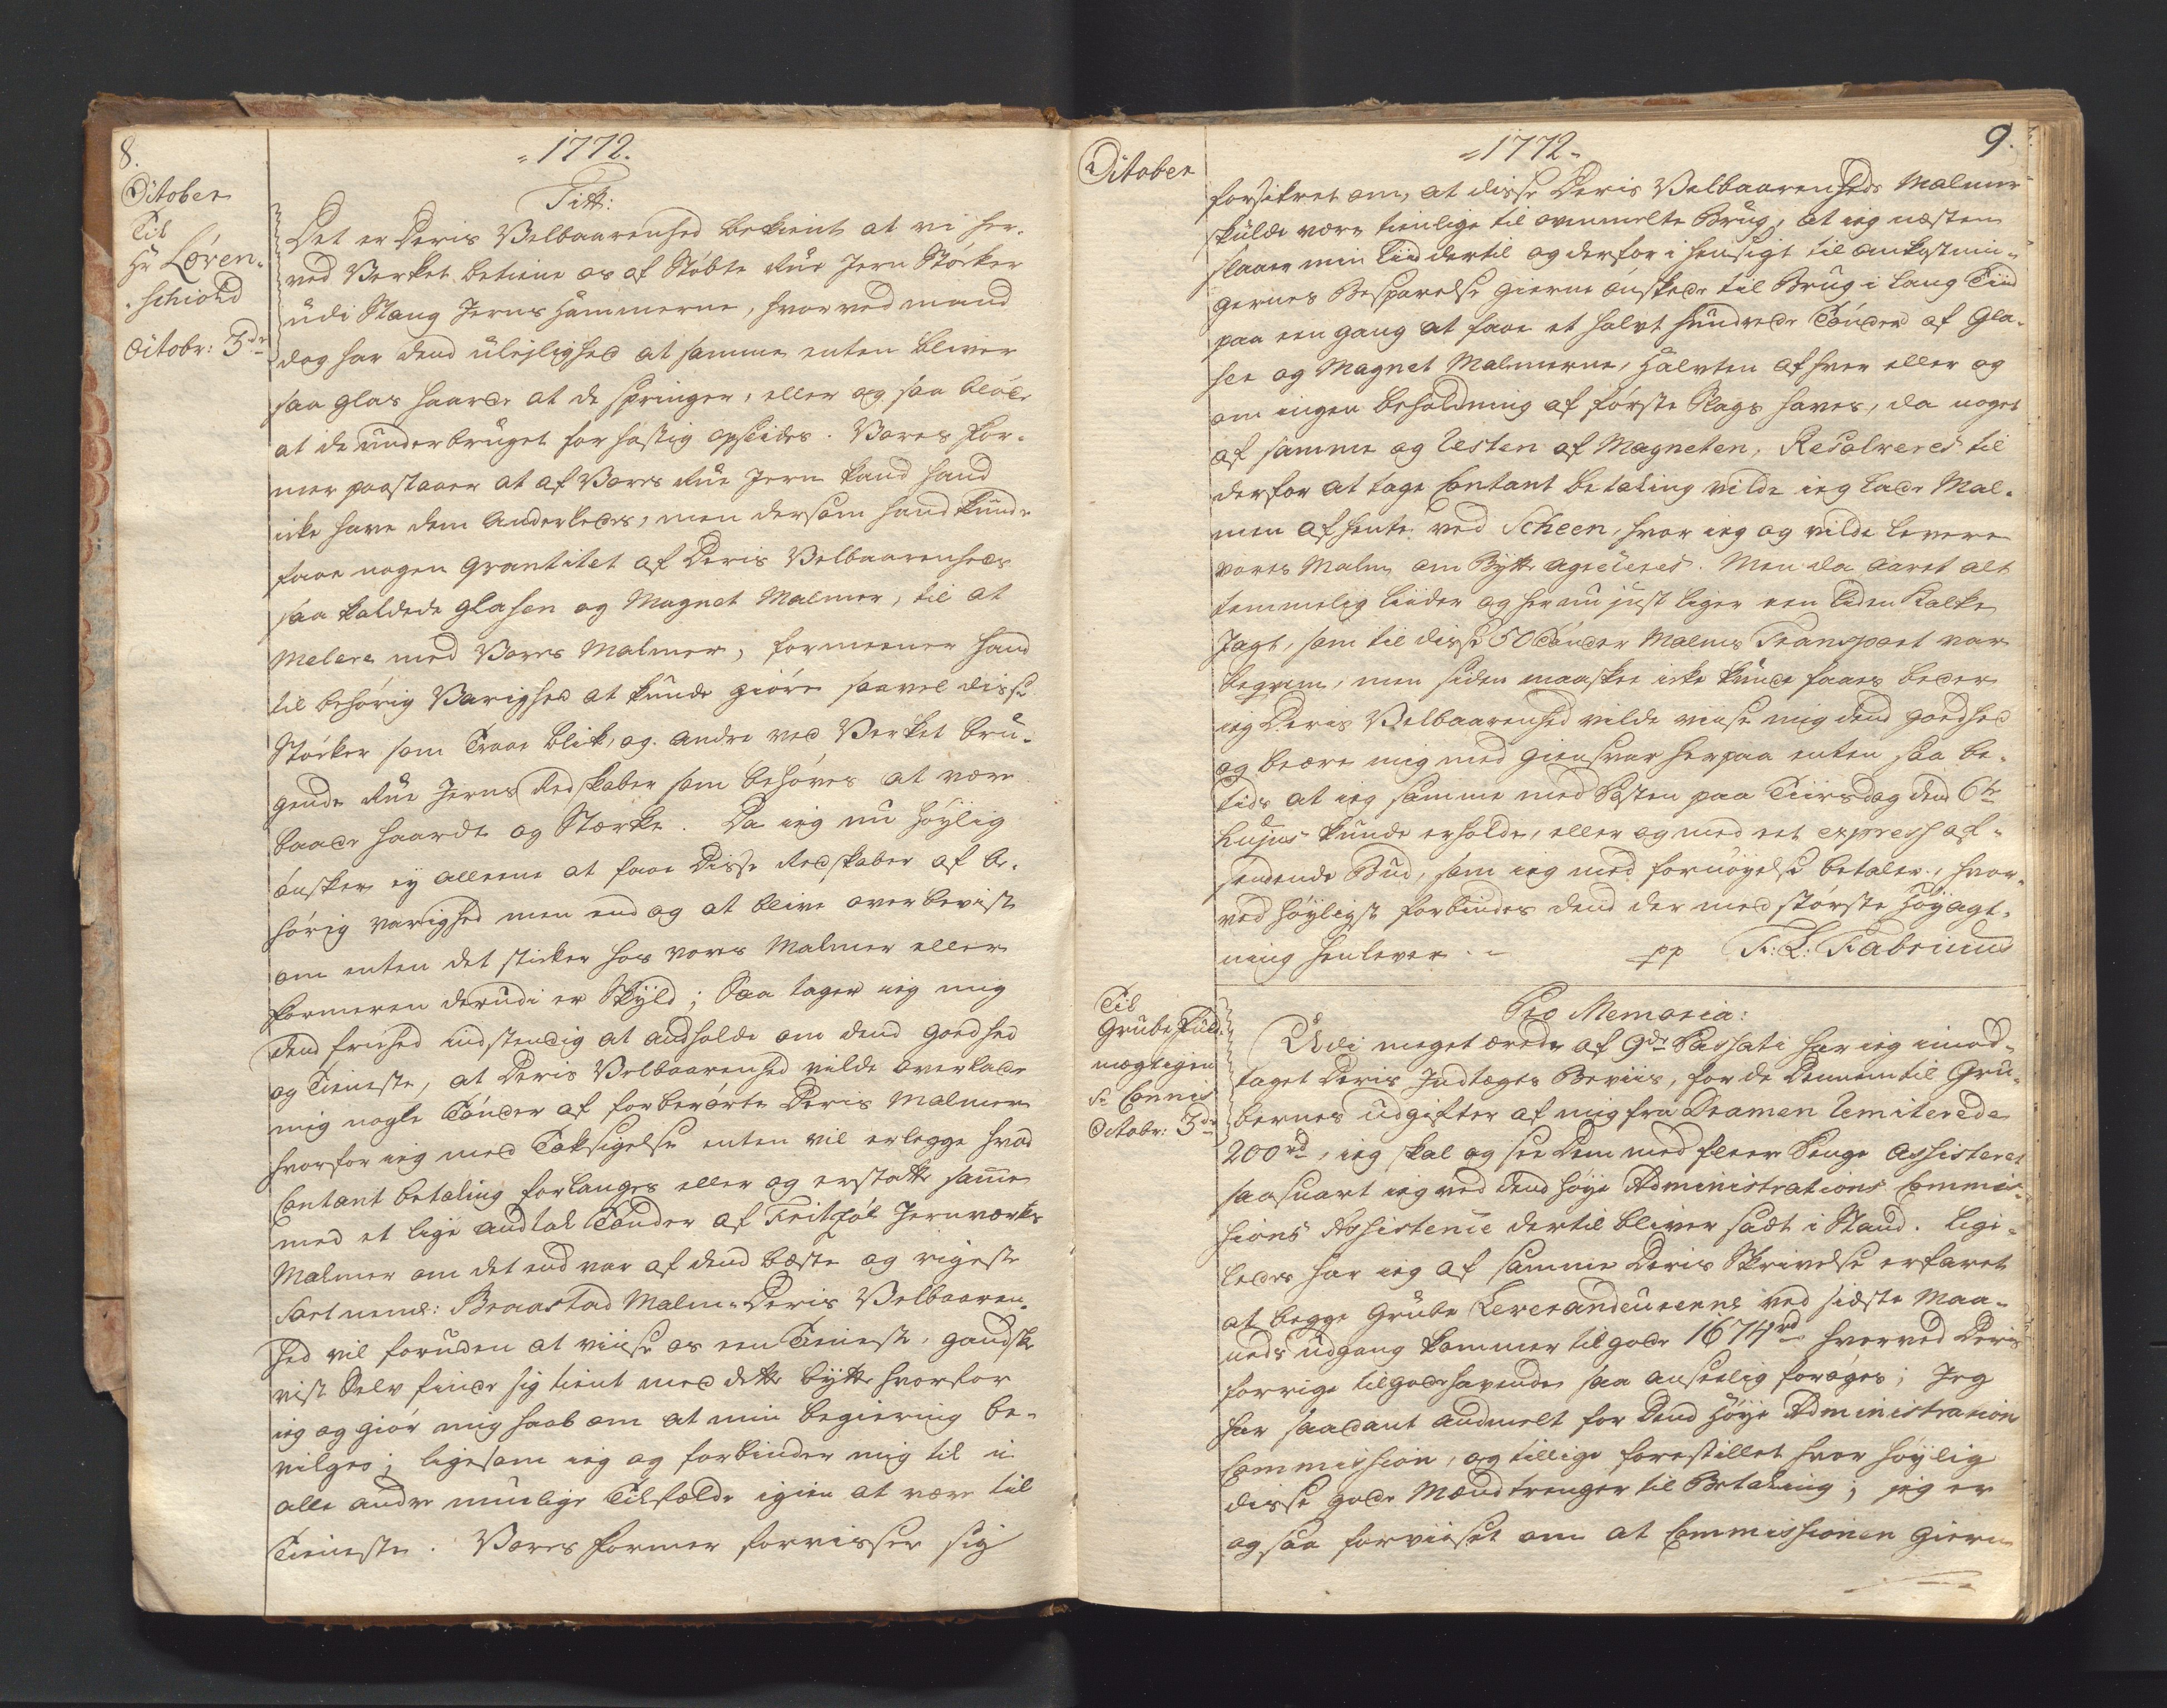 8.
1772.
October
Til
Hr Löven-
schiold
Octobr: 3de
Titt:
Det er Deris Velbaarenhed bekient at vi her-
ved Verket betiene os af Støbte Rue Jern Støcker
udi Stang Jerns Hammerne, hvorved mand
dog har dend ulejlighed at samme enten bliver
saa glas haarde at de springer, eller og saa bløde
at de under bruget for hastig opslides. Vores For-
mer paastaaer at af Vores Rue Jern kand hand
icke have dem anderledes, men dersom hand kunde
faae nogen Qvantitet af Deris Velbaarenheds
saa kaldede Glasen og Magnet Malmer, til at
melere med Vores Malmer, formeener hand
til behørig Varighed at kunde giøre saavel disse
Støcker som Traae Blik, og andre ved Verket bru-
gende Rue Jerns Redskaber som behøves at være
baade haarde og Stærke. Da ieg nu høylig
ønsker ey alleene at faae Disse Redskaber af be-
hørig varighed men end og at blive overbevist
om enten det sticker hos vores Malmer eller
Formeren derudi er Skyld; Saa tager ieg mig
dend frihed indstendig at andholde om dend goedhed
og Tieneste, at Deris Velbaarenhed vilde overlade
mig nogle Tønder af forberørte Deris Malmer
hvorfor ieg med Taksigelse enten vil erlegge hvad
Contant betaling forlanges eller og erstatte same
med et lige andtal Tønder af Fritzøe Jernværks
Malmer om det end var af dend beste og rigeste
Sort neml: Braastad Malm. Deris Velbaaren-
hed vil foruden at viise os een Tieneste, gandske
vist Selv finde sig tient med dette bytte hvorfor
ieg og giør mig haab om at min begiering be-
vilges; ligesom ieg og forbinder mig til i
alle andre muelige Tilfælde igien at være til
Tieneste. Vores Former forvisser sig
9.
1772.
October
forsikret om, at disse Deris Velbaarenheds Malmer
skulde være tienlige til ovenmelte Brug, at ieg næsten
slaaer min Liid dertil og derfor i hensigt til omkostnin-
gernes Besparelse gierne ønskede til Brug i lang Tiid
paa een gang at faae et halvt hundrede Tønder af Gla-
sen og Magnet Malmerne, Halvten af hver eller og
om ingen beholdning af første Slags haves, da noget
af samme og Resten af Magneten, Resolveres til
derfor at tage Contant betaling vilde ieg lade Mal-
men afhente ved Scheen, hvor ieg og vilde levere
vores Malm om Bytte agreeres. Men da aaret alt
temmelig liider og her nu just liger een liden Kalke
Jagt, som til disse 50 Tønder Malms Transport var
beqvem, men siden maaskee icke kunde faaes beder
ieg Deris Velbaarenhed vilde viise mig dend goedhed
og beære mig med giensvar herpaa enten saa be-
tids at ieg samme med Posten paa Tiirsdag den 6te
hujus kunde erholde, eller og med eet express af-
sendende Bud, som ieg med fornøyelse betaler, hvor-
ved høyligst forbindes dend der med største Høyagt-
ning henlever
pp F: L: Fabritius
Til
Grube Fuld-
mægtigen
Sr Connis
Octobr: 3de
Pro Memoria:
Udi meget ærede af 9de Passati har ieg imod-
taget Deris Indtægts Beviis, for de Dennem til Gru-
bernes udgifter af mig fra Dramen Remiterede
200rd, ieg skal og see Dem med fleere Penge assisteret
saasnart ieg ved dend høye Administrations Commis-
sions Assistence dertil bliver sadt i Stand. Lige-
ledes har ieg af samme Deris Skrivelse erfaret
at begge Grube Leverandeurerne ved sidste Maa-
neds udgang kommer tilgode 1674rd hvorved Deris
forrige tilgodehavende saa anseelig forøges; Jeg
har saadant andmelt for dend Høye Administration
Commission, og tillige forestillet hvor høylig
disse gode Mænd trenger til Betaling, jeg er
og saa forviisset om at Commissionen gierne